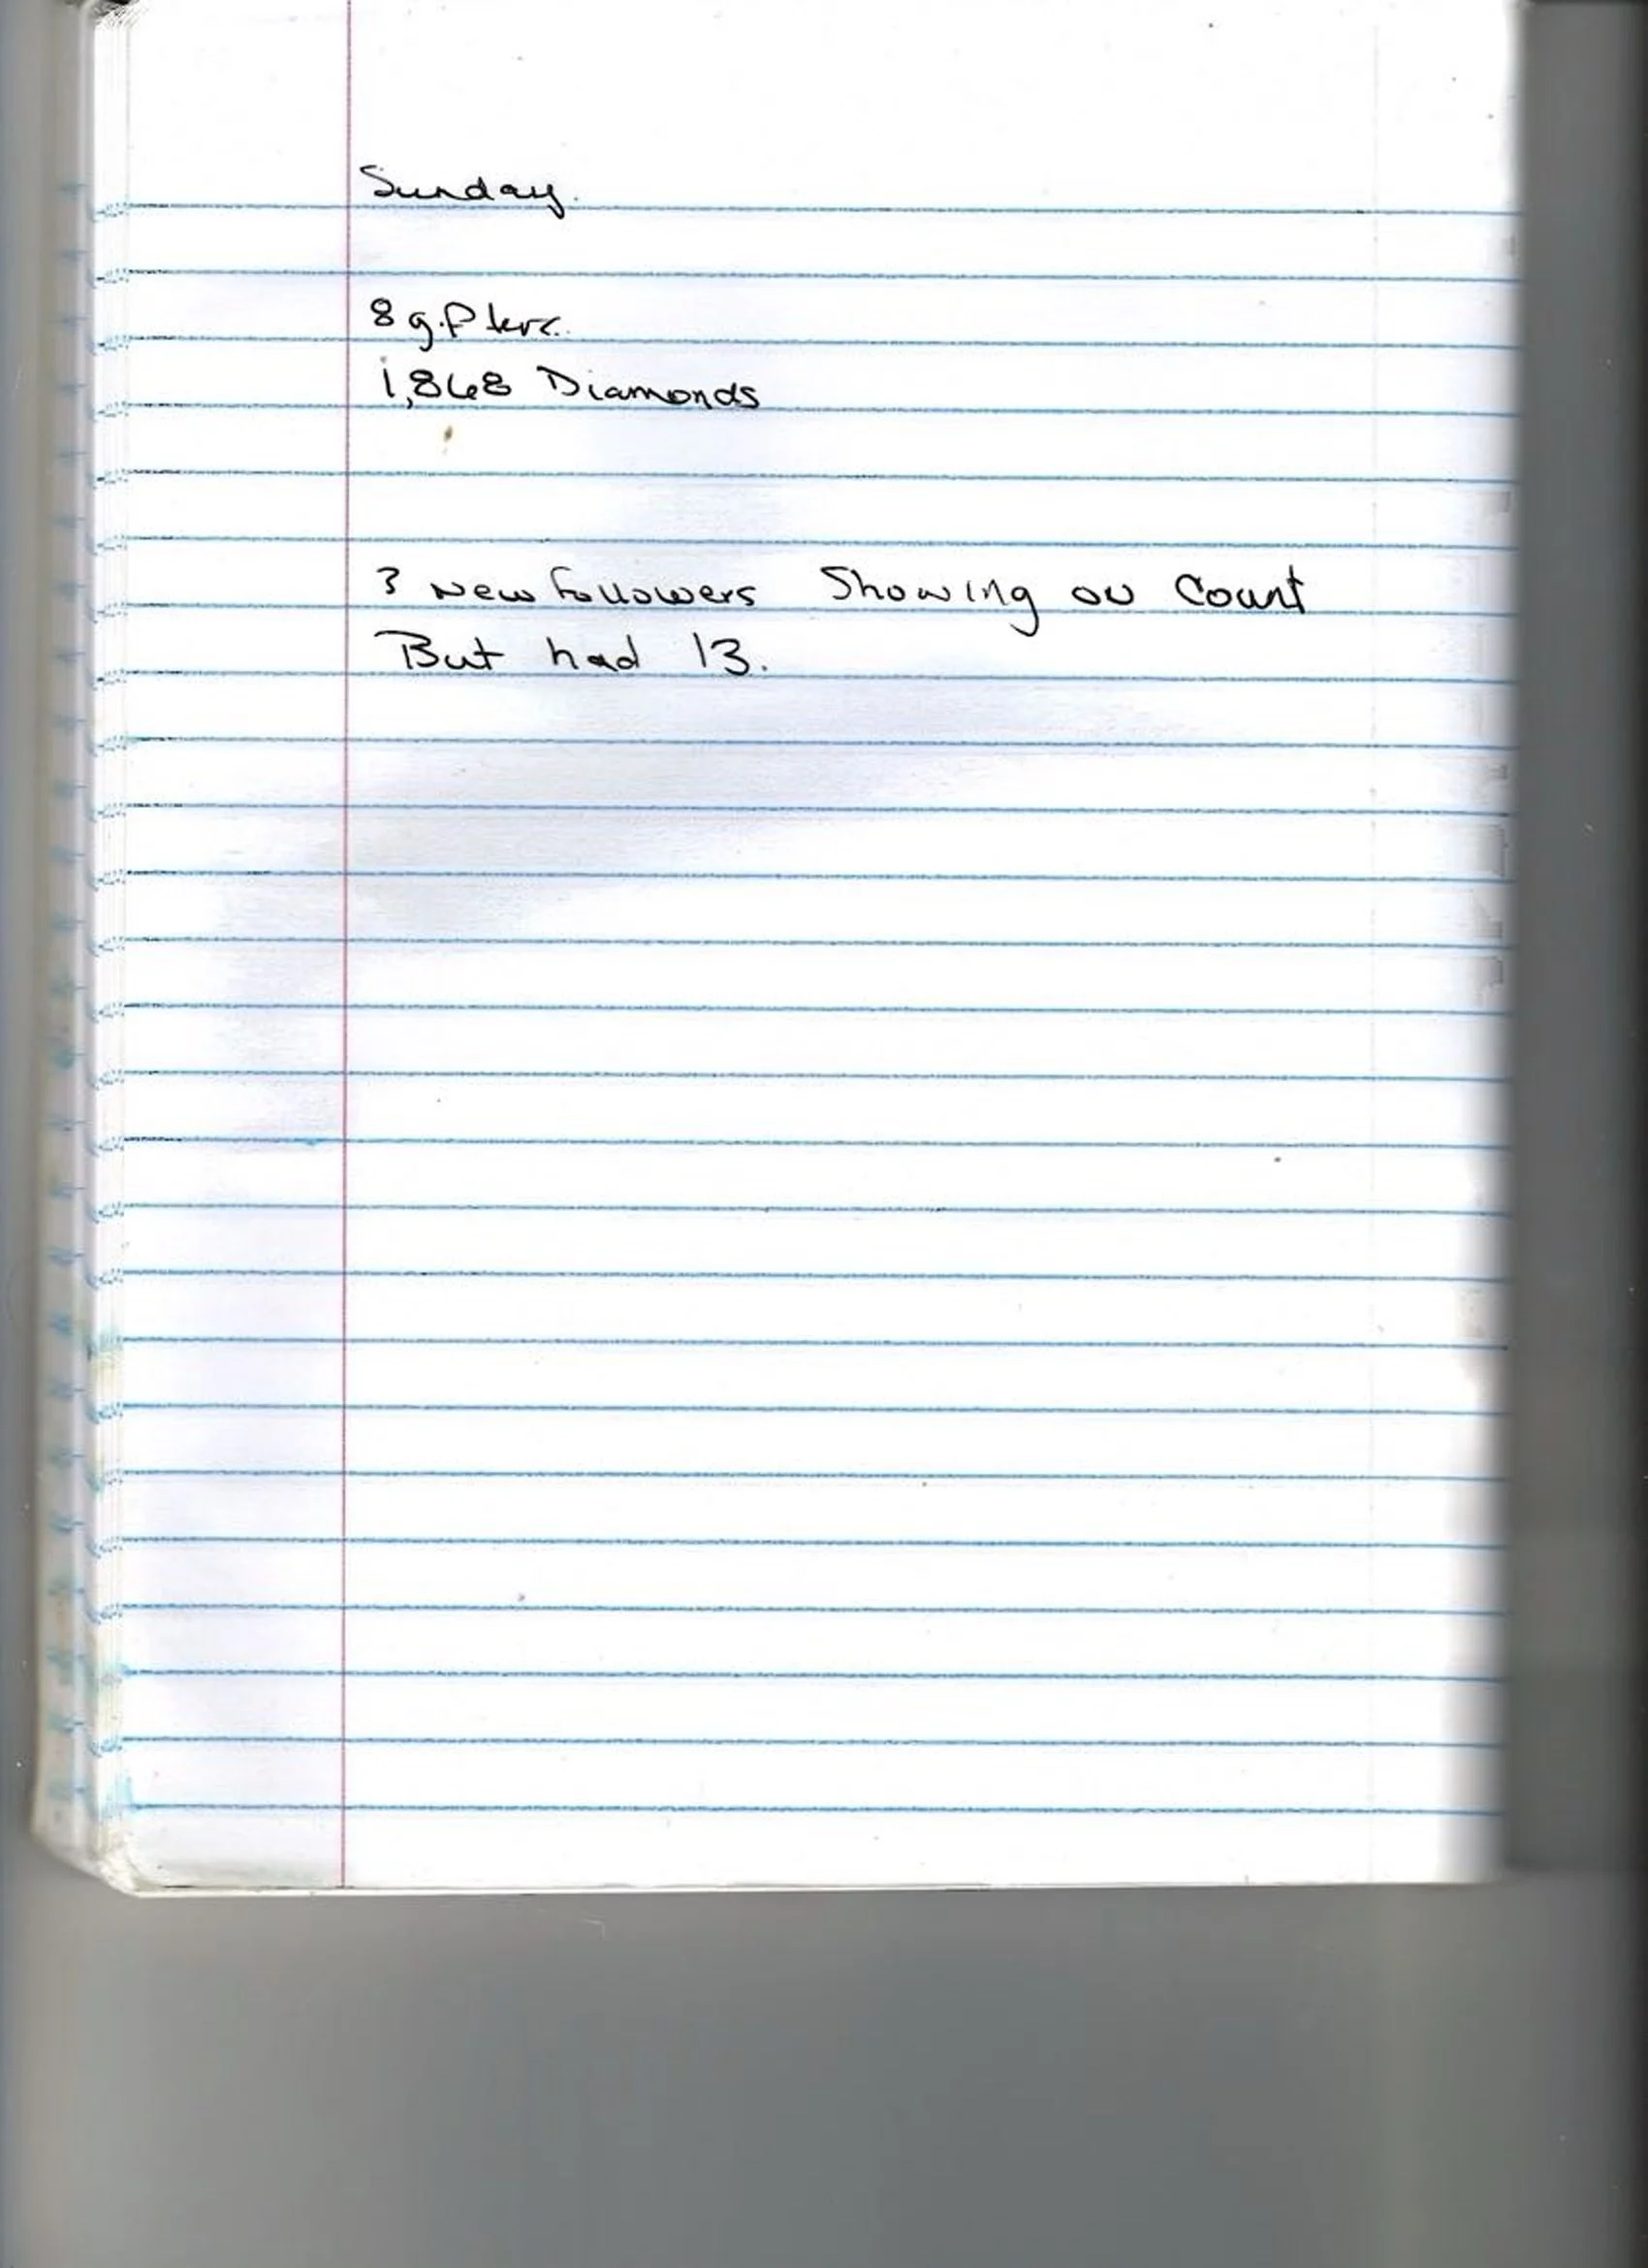 Sunday.
8 g.p
1,868 Diamonds
3 New Followers Showing on Count
But had 13.